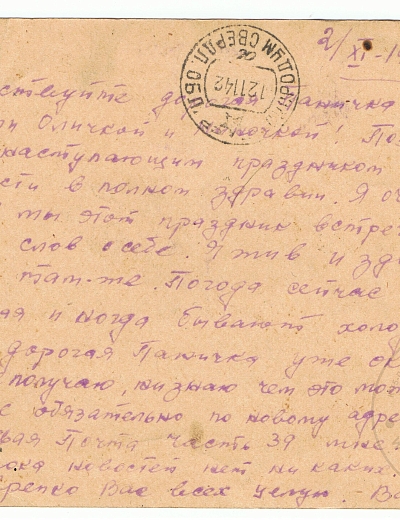 2/XI-19
УДОРН СВЕРДЛ. ОБЛ
12 11 42
ствуйте дорогая Паничка
Оличкой и ночкой! По
наступающим праздником
сти в полном здравии. Я о
мы этот праздник встре
слов о себе. Я жив и зд
там-же. Погода сейчас
ая иногда бывают холо
дорогая Паничка уже ок
получаю, низнаю чем это мож
с обязательно по новому адре
вая Почта часть 39 мне
пока новостей нет ни каких.
репко Вас всех целую - Ва